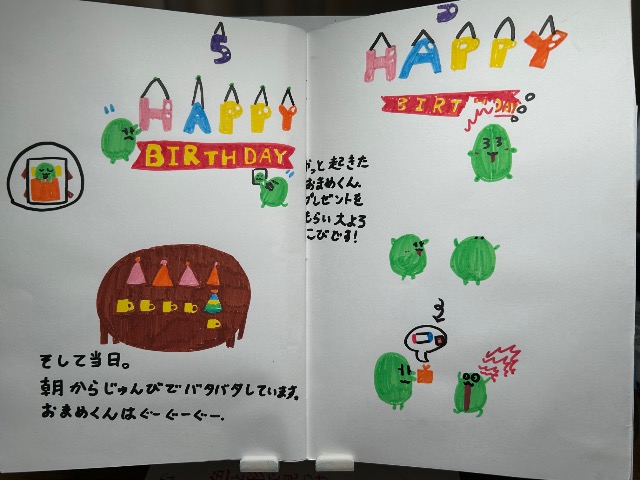 5
HAPPY
BIRTHDAY
そして当日。
朝からじゅんびでバタバタしています。
おまめくんはぐーぐーぐー.
HAPPY
BIRT DAY
やっと起きた
おまめくん、
プレゼントを
もらい大よろ
こびです!